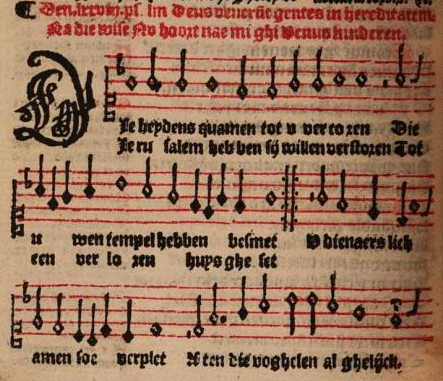 Den .lxxviij. ps. Deus venerūt gentes in hereditatem.
Na die wise Nv hoort nae mi ghi Venus kinderen.
DIe heydens quamen tot v vercozen Die
Ieru salem heb ben sy willen verstozen Tot
u wen tempel hebben besmet V dienaers lich
een ver lo zen huys ghe set
amen soe verplet Aten die voghelen al ghelijck.